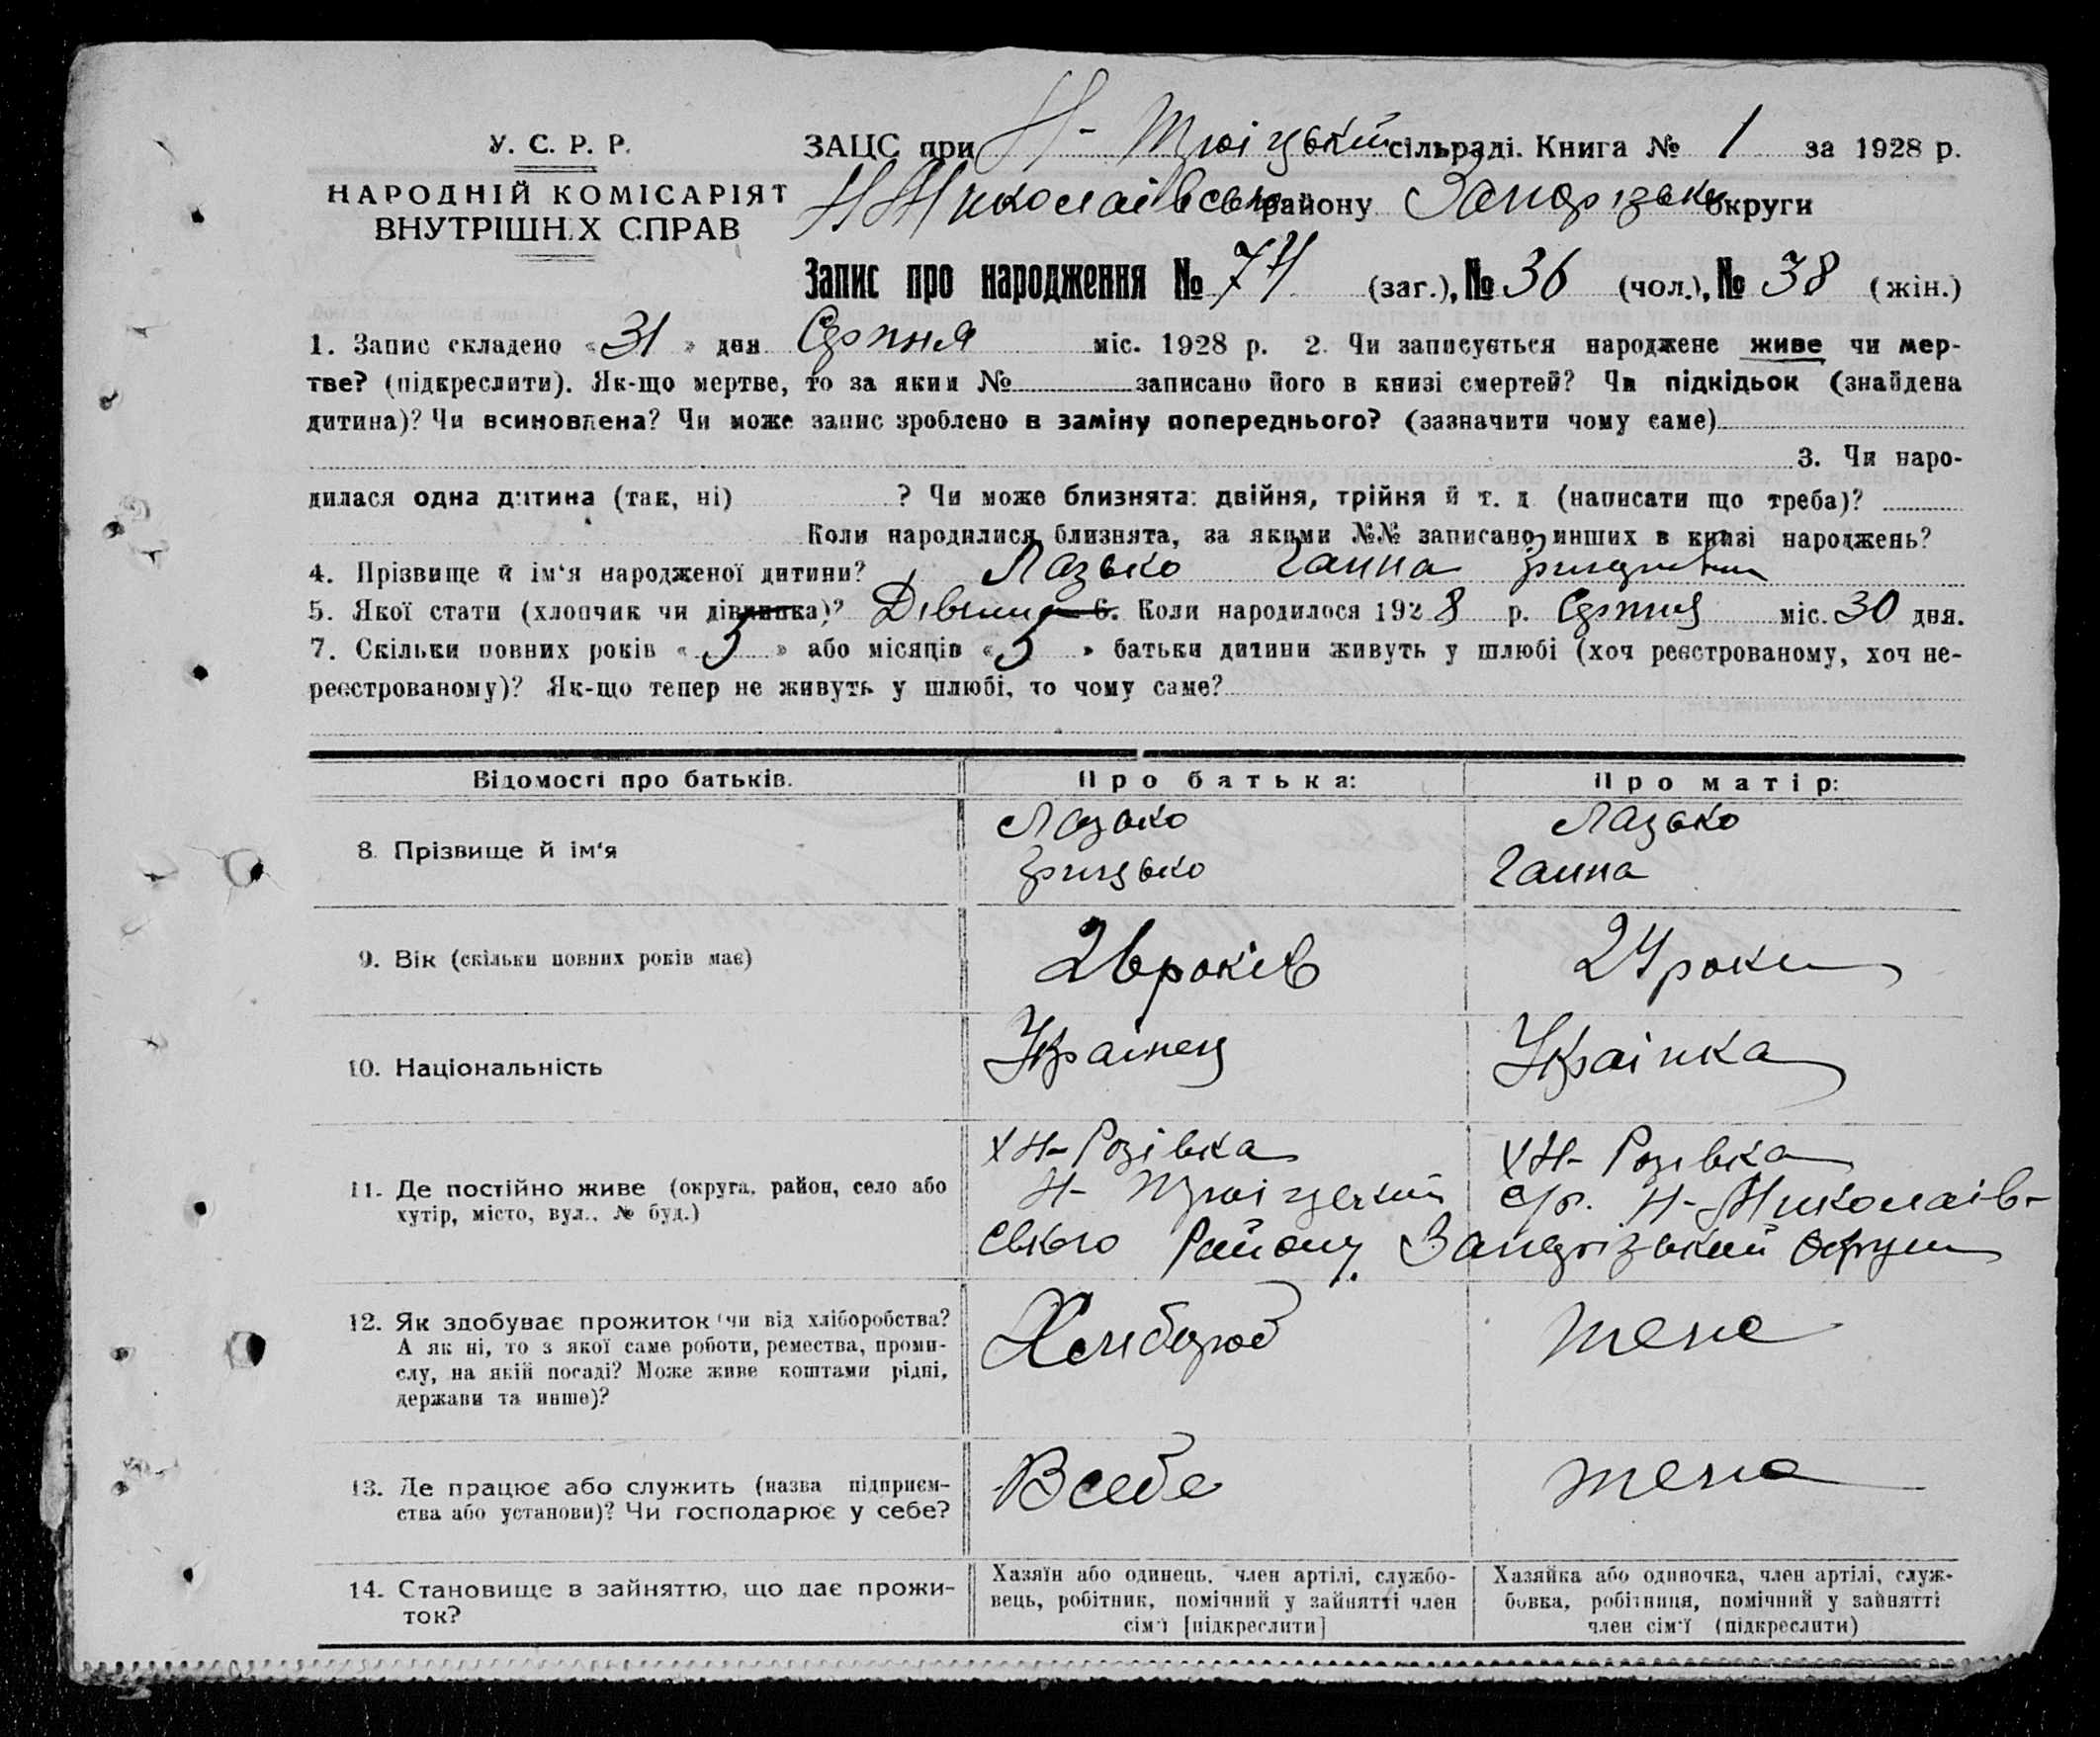 У. С. Р. Р.
НАРОДНІЙ КОМІСАРІЯТ
ВНУТРІШНІХ СПРАВ
ЗАЦС при Н-Троіцький сільраді. Книга № 1 за 1928 р.
Н Николаівсько району Запорізько округи
Запис про народження № 74 (заг.), № 36 (чол.), № 38 (жін.)
1. Запис складено « 31 » дня Серпня міс. 1928 р. 2. Чи записується народжене живе чи мер-
тве? (підкреслити). Як-що мертве, то за яким № записано його в книзі смертей? Чи підкідьок (знайдена
дитина)? Чи всиновлена? Чи може запис зроблено в заміну попереднього? (зазначити чому саме)
3. Чи наро-
дилася одна дитина (так, ні) ? Чи може близнята: двійня, трійня й т. д. (написати що треба)?
Коли народилися близнята, за якими №№ записано инших в книзі народжень?
4. Прізвище й ім'я народженої дитини? Лазько Ганна
5. Якої стати (хлопчик чи дівчинка)? 6. Коли народилося 1928 р. Серпня міс. 30 дня.
7. Скільки повних років « 5 » або місяців « 5 » батьки дитини живуть у шлюбі (хоч реєстрованому, хоч не-
реєстрованому)? Як-що тепер не живуть у шлюбі, то чому саме?
Відомості про батьків. Про батька: Про матір:
8. Прізвище й ім'я Лазько Лазько
Грицько Ганна
9. Вік (скільки повних років має) 26 років 24 роки
10. Національність Украінец Украінка
11. Де постійно живе (округа, район, село або
хутір, місто, вул., № буд.)
х Н-Розівка х Н-Розівка
Н-Троіцький с/р. Н-Николаів-
ського Району Запорізький Округи
12. Як здобуває прожиток (чи від хліборобства?
А як ні, то з якої саме роботи, ремества, проми-
слу, на якій посаді? Може живе коштами рідні,
держави та инше)?
Хлибороб
13. Де працює або служить (назва підприєм-
ства або установи)? Чи господарює у себе?
В себе
14. Становище в зайняттю, що дає прожи-
ток?
Хазяїн або одинець, член артілі, службо-
вець, робітник, помічний у зайнятті член
сім'ї [підкреслити]
Хазяйка або одиночка, член артілі, служ-
бовка, робітниця, помічний у зайнятті
член сім'ї (підкреслити)